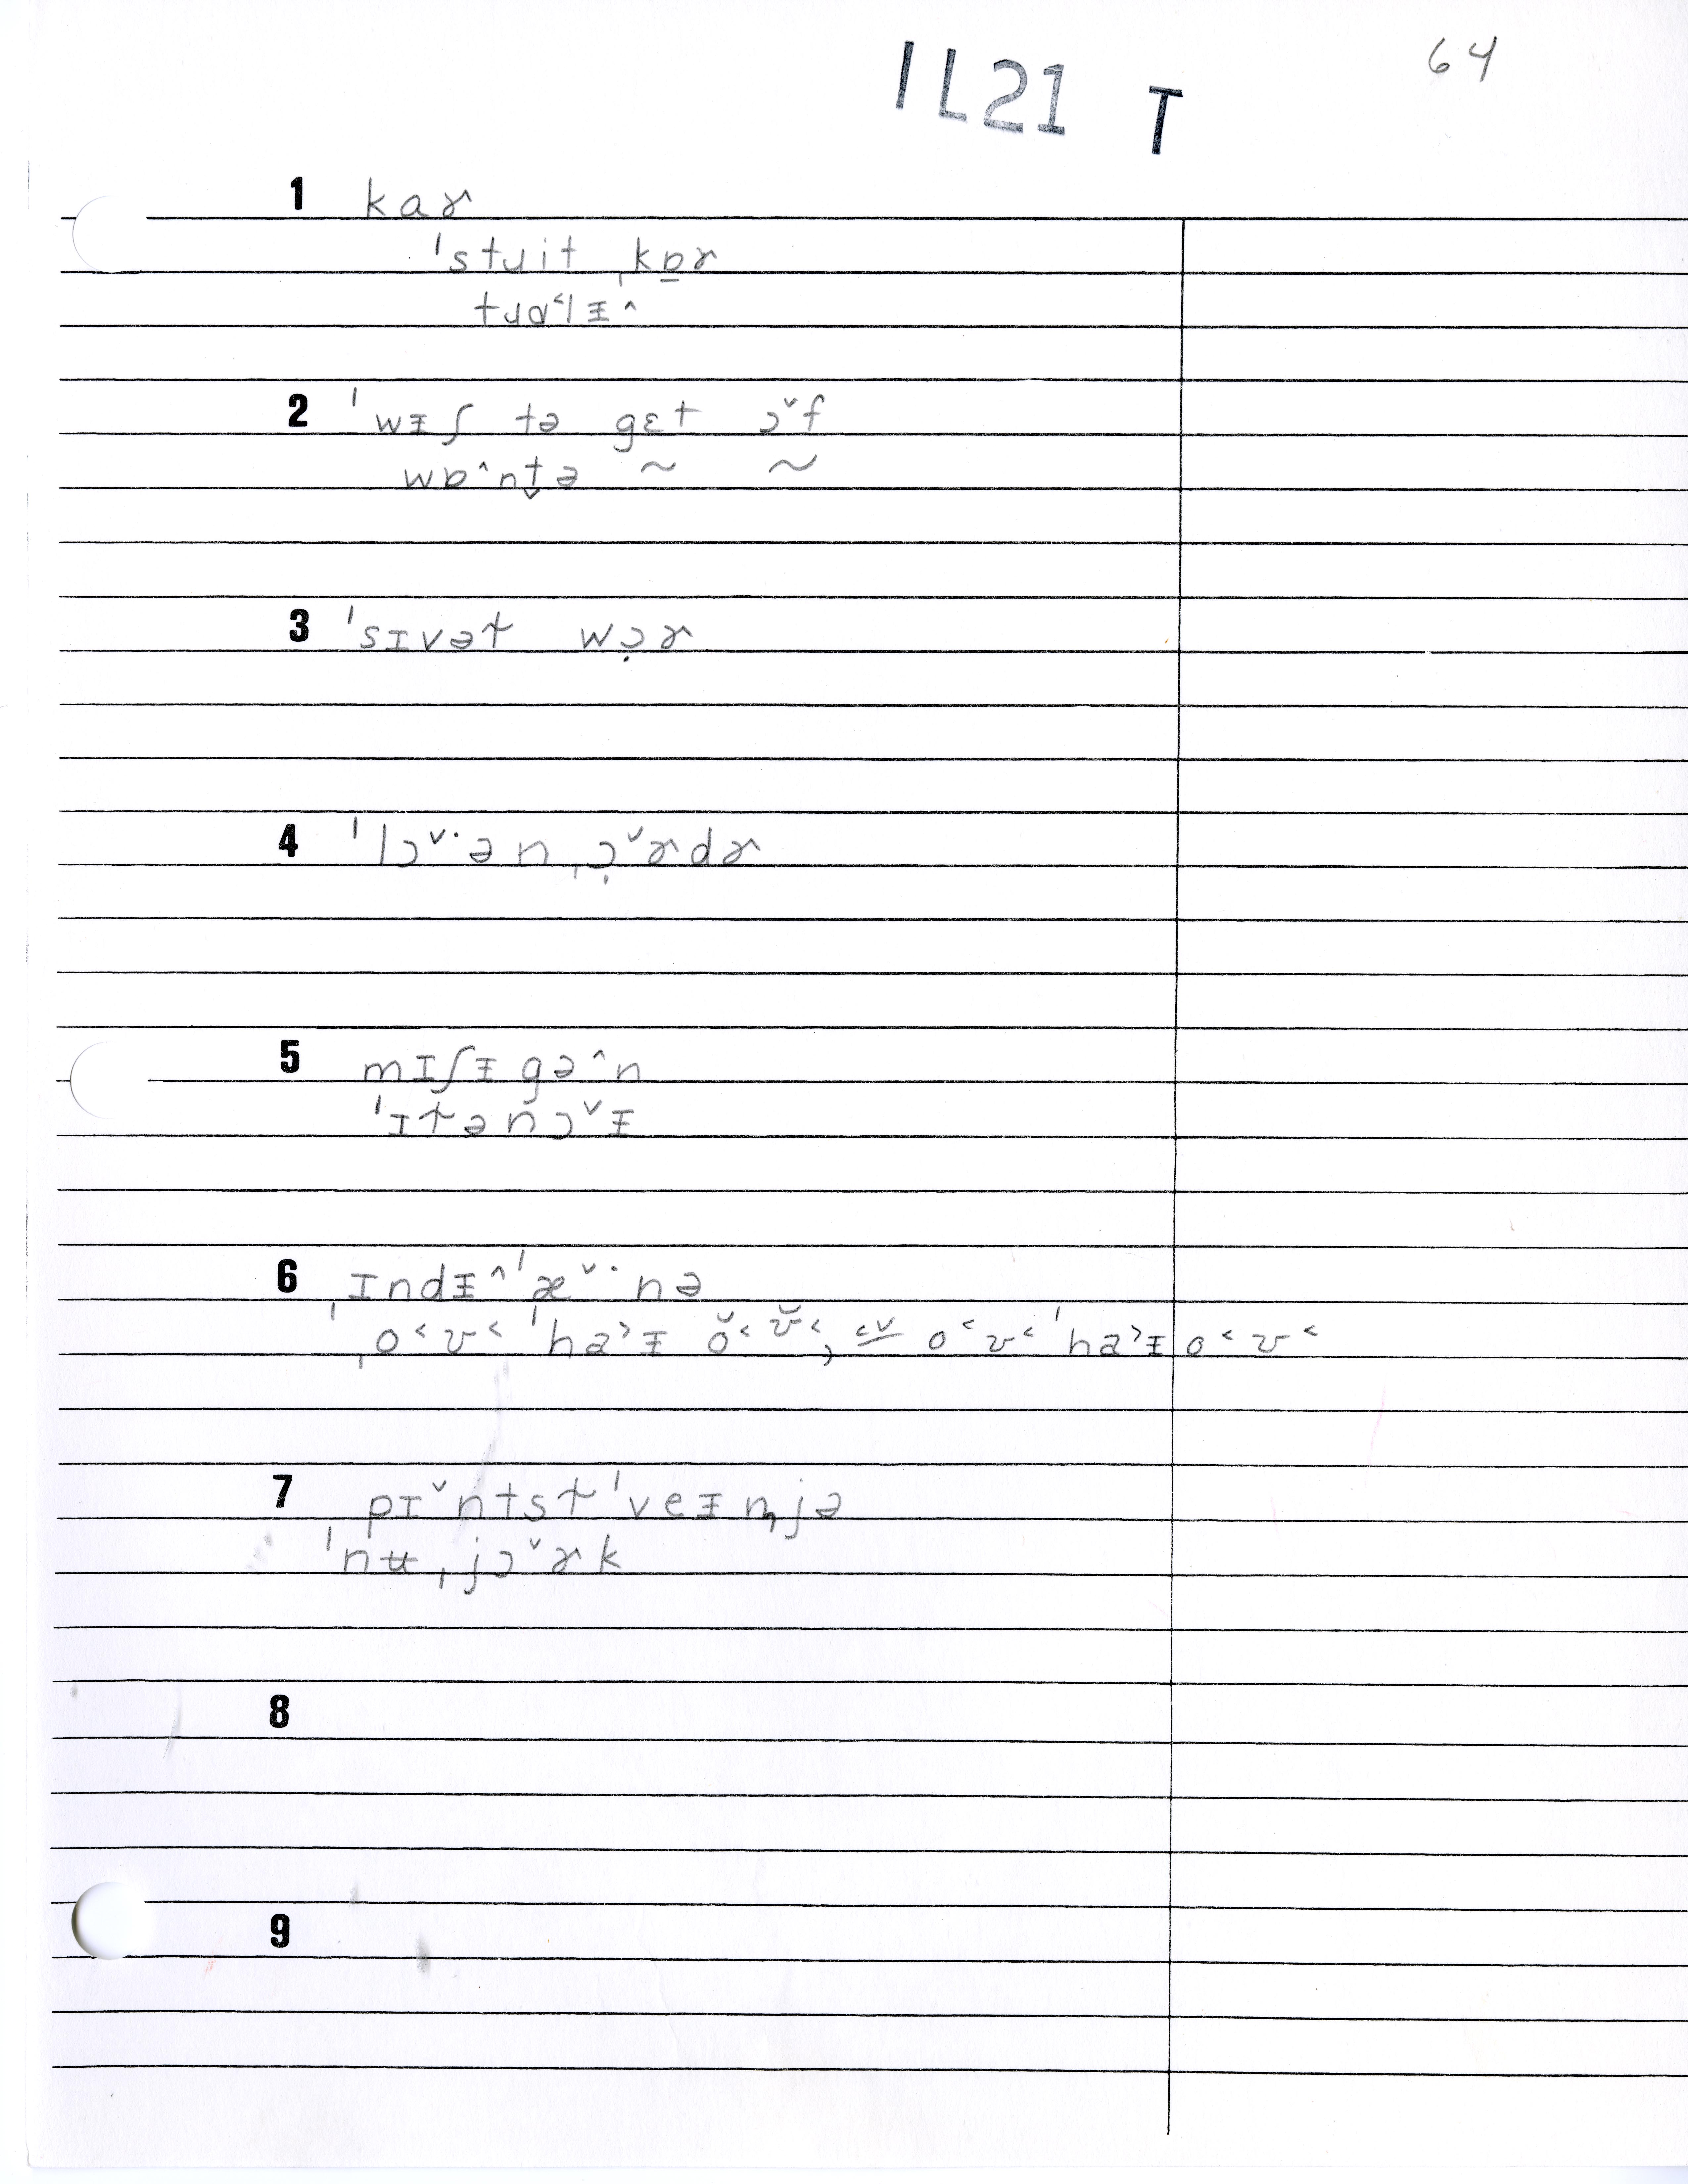 IL21 T
64
1 kaɚ
ˈstɹit ˌkɒ̠ɚ
tɹɑ˂lᵻ˄
2 ˈwᵻʃ tə gɛt ɔ˅f
wɒ˄nt̬ə ~ ~
3 ˈsɪvət wɔ̣ɚ
4 ˈlɔ˅·ən ˌɔ̣˅ɚdɚ
5 mɪʃᵻgə˄n
ˈɪtənɔ˅ᵻ
6 ˌɪndᵻ˄ˈæ˅·nə
ˌo˂ʊ˂ ˈha˃ᵻ ǒ˂ʊ̌˂, o˂ʊ˂ ˈha˃ᵻ o˂ʊ˂
7 pɪ˅ntstˈveᵻnjə
ˈnʉˌjɔ˅ɚk
8
9